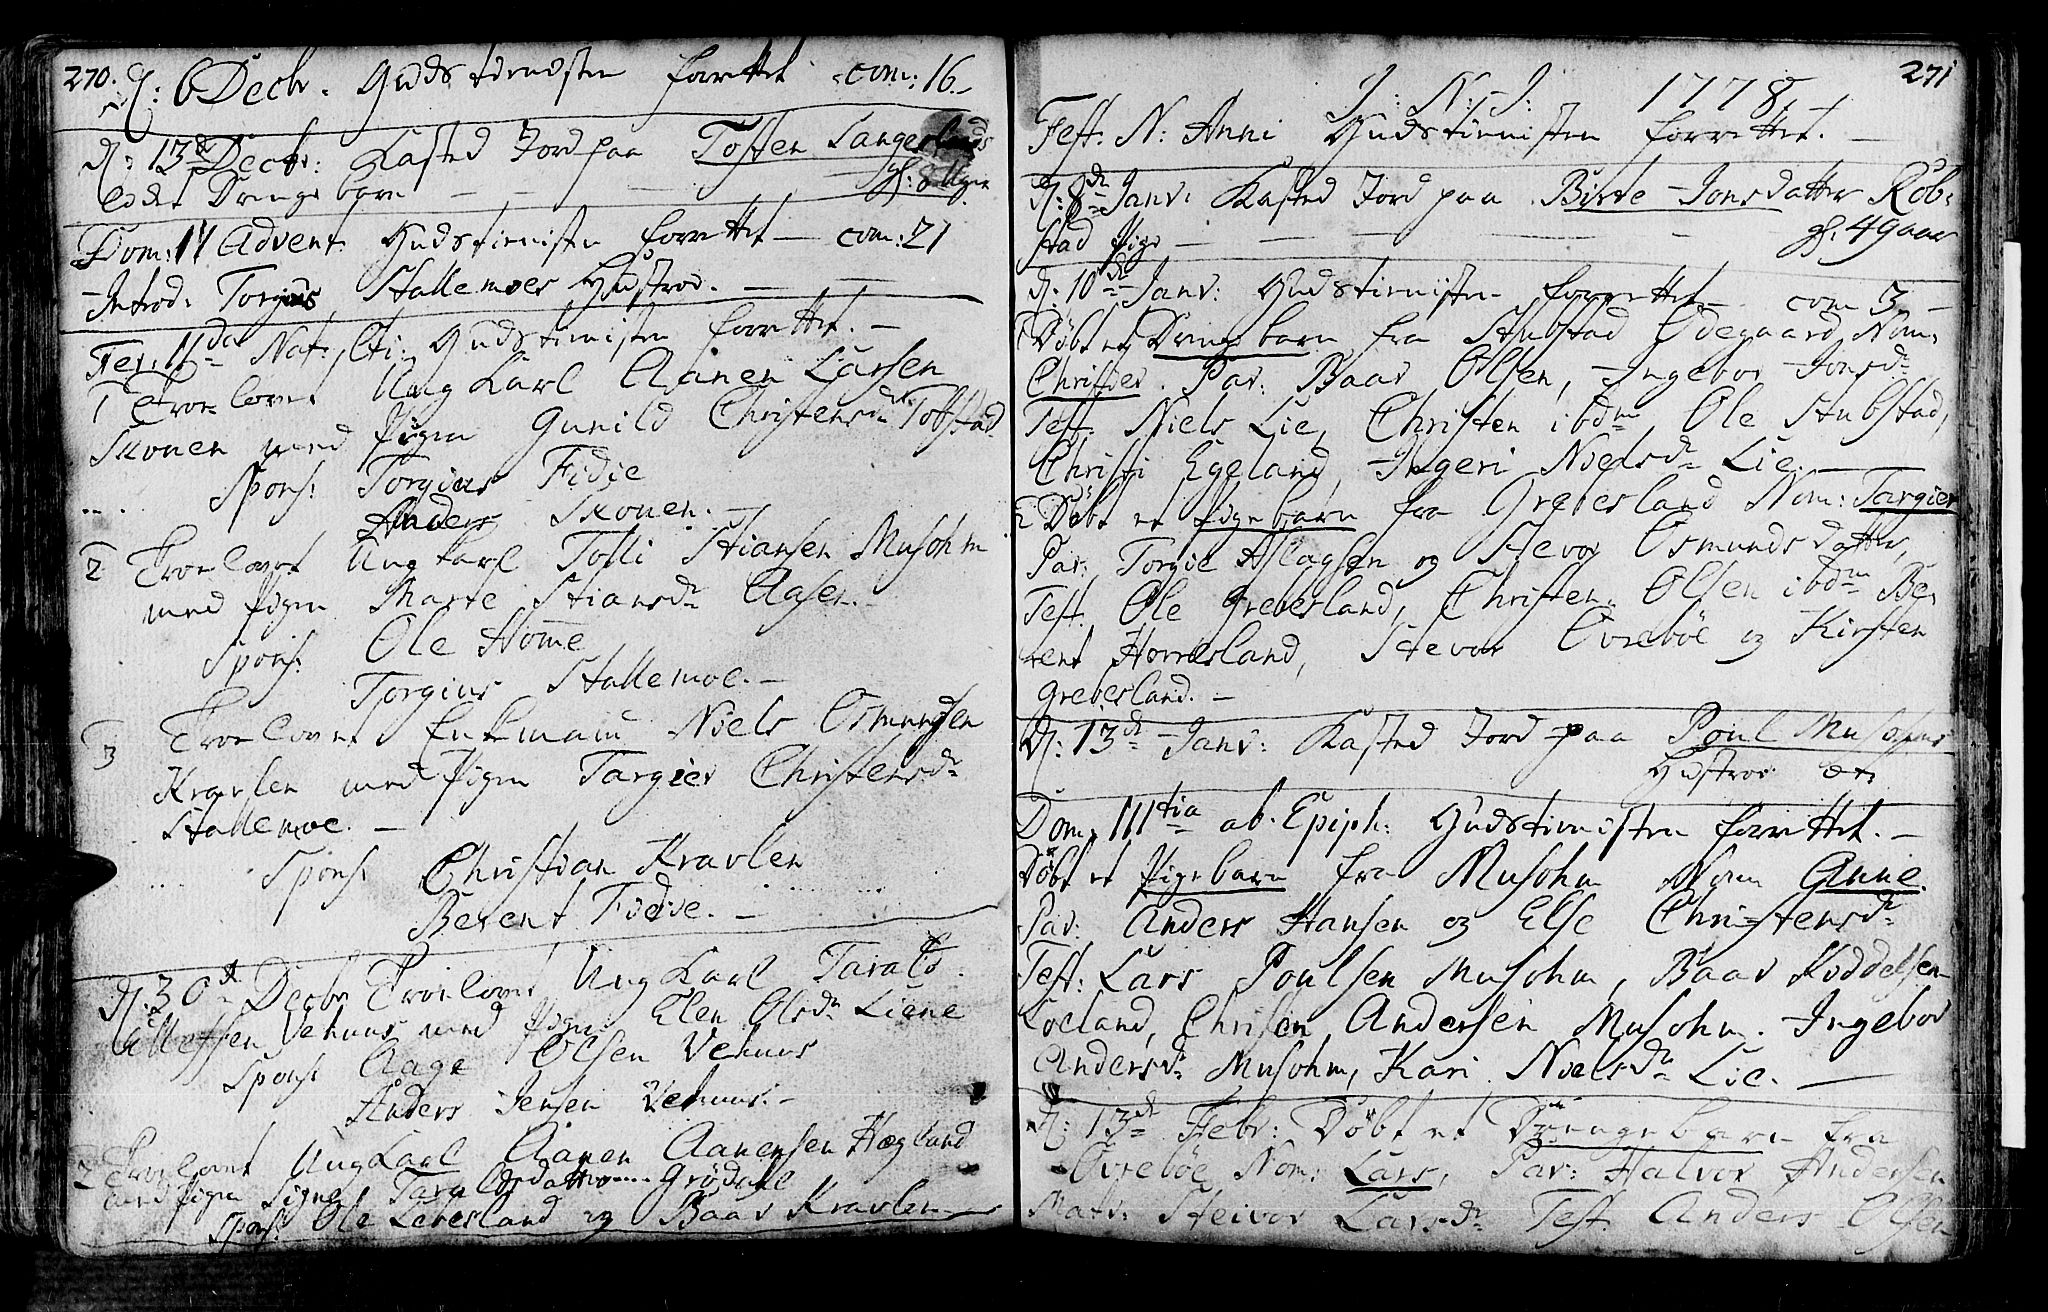 270.
d: 6 Decbr. Gudstienesten forrettet com: 16.
d: 13de Decbr: Kasted Jord paa Tosten Langeslands
Drenge barn — — — gl: 8 Uger
Dom: IV Advent. Gudstienisten forrettet — com: 21
Introd: Torgius Stallemoes Hustroe. —
Fer: IIda Nat: Xti: Gudstienisten forrettet. —
1 Troelovet Ung Karl Aanen Larsen
Skouen med Pigen Gunild Christensdr Tofstad
Spons: Torgius Fidie
Anders Skouen. —
2 Troelovet Ung Karl Tolli Stiansen Musohm
med Pigen Marte Stiansdr Aasen.
Spons: Ole Homme
Torgius Stallemoe. —
3 Troelovet Enkemand Niels Osmundsen
Kravlen med Pigen Targier Christensdr
Stallemoe. —
Spons: Christian Kravlen
Berent Fidie. —
d: 30te Decbr Troelovet Ung Karl Tarald
Vehuus med Pigen Elen Olsdr Liene
Spons: Aage Olsen Vehuus
Anders Jensen Vehuus. —
2 Troelovet Ung Karl Aanen Aanensen Hægland
med Pigen Signe Taraldsdatter Grødahl
Spons: Ole Leversland og Baar Kravlen
271
J: N: J: 1778.
Fest: N: Anni Gudstienisten forrettet. —
d: 8de Janv: Kasted Jord paa Birte Jonsdatter Røb-
stad Pige — — — — gl: 49 aar
d: 10de Janv: Gudstienisten forrettet com 3 —
1 Døbt et Drengebarn fra Stubstad Ødegaard Nom:
Christen. Par: Baar Olsen, Ingebor Jonsdr
Test: Niels Lie, Christen ibdm Ole Stubstad,
Christi Egeland, Ingeri Nielsdr Lie. —
2 Døbt et Pigebarn fra Greversland Nom: Targier
Par: Torgie Aslagsen og Stevor Osmundsdatter,
Test: Ole Greversland, Christen Olsen ibdm Be-
rent Horrisland, Stevor Øvrebøe og Kirsten
Greversland. —
d: 13de Janv: Kasted Jord paa Poul Musohms
Hustroe
Dom: IIItia ab. Epiph: Gudstienisten forrettet. —
Døbt et Pigebarn fra Musohm Nom Anne.
Par: Anders Hansen og Else Christensdr
Test: Lars Poulsen Musohm, Baar Kiddelsen
Loeland, Christen Andersen Musohm. Ingebor
Andersdr Musohm, Kari Nielsdr Lie. —
d: 13de Febr: Døbt et Drengebarn fra
Øvrebøe Nom: Lars, Par: Halvor Andersen
Matr: Steivor Larsdr Test: Anders Olsen